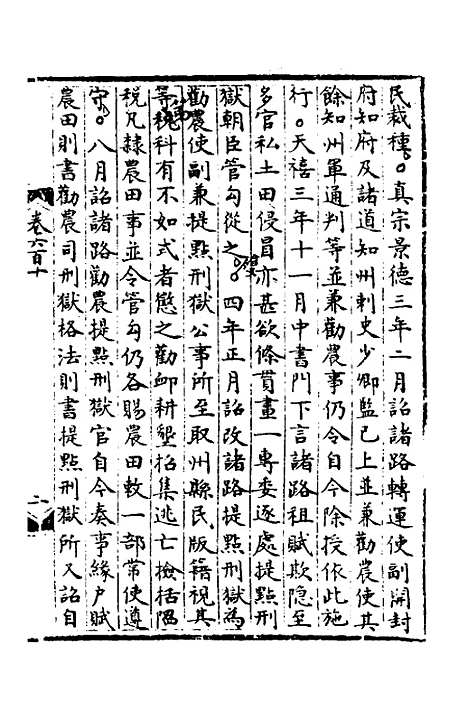 民栽種。真宗景德三年二月詔諸路轉運使副開封
府知府及諸道知州刺史少卿監已上並兼勸農使其
餘知州軍通判等並兼勸農事仍令自今除授依此施
行。天禧三年十一月中書門下言諸路租賦欺隱至
多官私土田侵冒亦甚欲條貫畫一專委逐處提點刑
獄朝臣管勾從之。四年正月詔改諸路提點刑獄為
勸農使副兼提點刑獄公事所至取州縣民版籍視其
等稅科有不如式者懲之勸卹耕墾招集逃亡檢括隱
稅凡隸農田事並令管勾仍各賜農田敕一部常使遵
守。八月詔諸路勸農提點刑獄官自今奏事緣戶賦
農田則書勸農司刑獄格法則書提點刑獄所又詔自
卷六百十
二